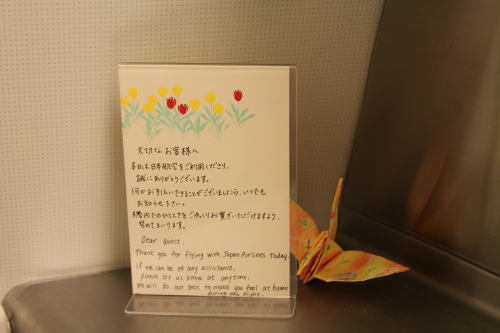 大切な お客様へ
本日は日本航空をご利用くださり、
誠にありがとうございます。
何かお手伝いできることがございましたら、いつでも
お知らせ下さい。
機内でのひとときをごゆっくりお寛ぎいただけますよう、
努めてまいります。
Dear guest.
Thank you for flying with Japan Airlines today.
If we can be of any assistance,
please let us know at anytime.
We will do our best to make you feel at home
during the flight.